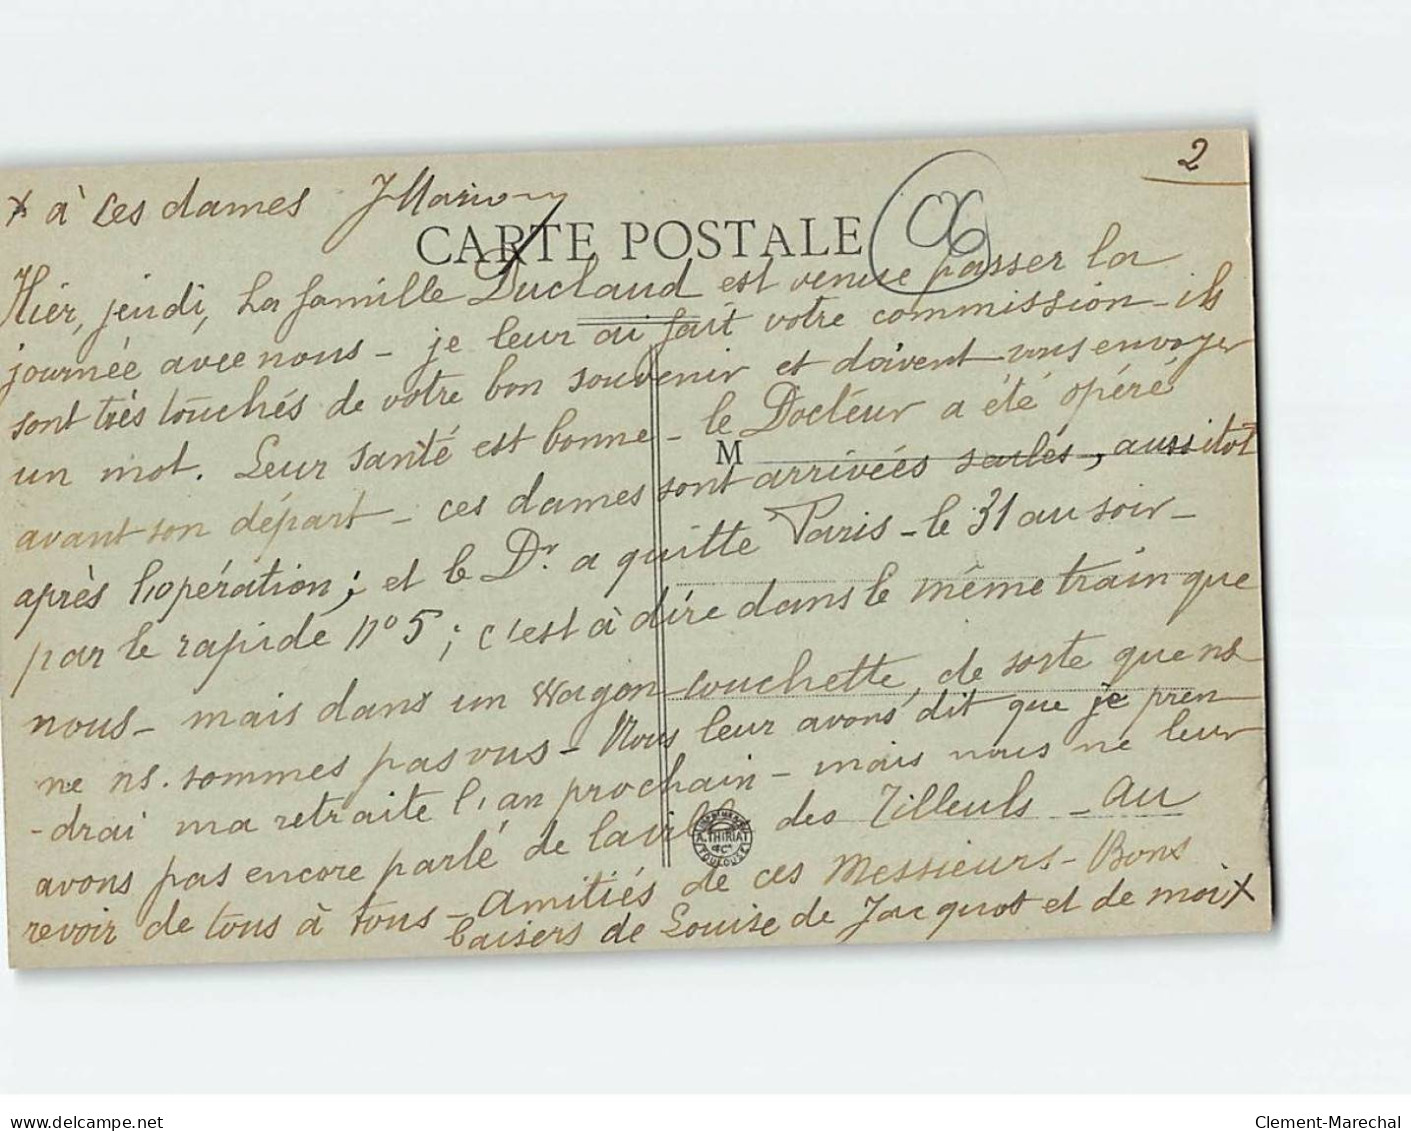 2
CARTE POSTALE
Hier, jeudi, la famille Duclaud est venue passer la
journée avec nous - je leur ai fait votre commission - ils
sont très touchés de votre bon souvenir et doivent vous envoyer
un mot. Leur santé est bonne - le Docteur a été opéré
M
avant son départ - ces dames sont arrivées seules, aussitot
après l'opération; et le Dr. a quitté Paris - le 31 au soir -
par le rapide n° 5; c'est à dire dans le même train que
nous - mais dans un wagon couchette, de sorte que ns
ne ns. sommes pas vus - Nous leur avons dit que je pren
-drai ma retraite l'an prochain - mais nous ne leur
avons pas encore parlé de la ville des Tilleuls - Au
A. THIRIAT
& Cie
TOULOUSE
revoir de tous à tous - Amitiés de ces Messieurs - Bons
baisers de Louise de Jacquot et de moi x
x à ces dames JMarion
delcampe.net
Clement-Marechal